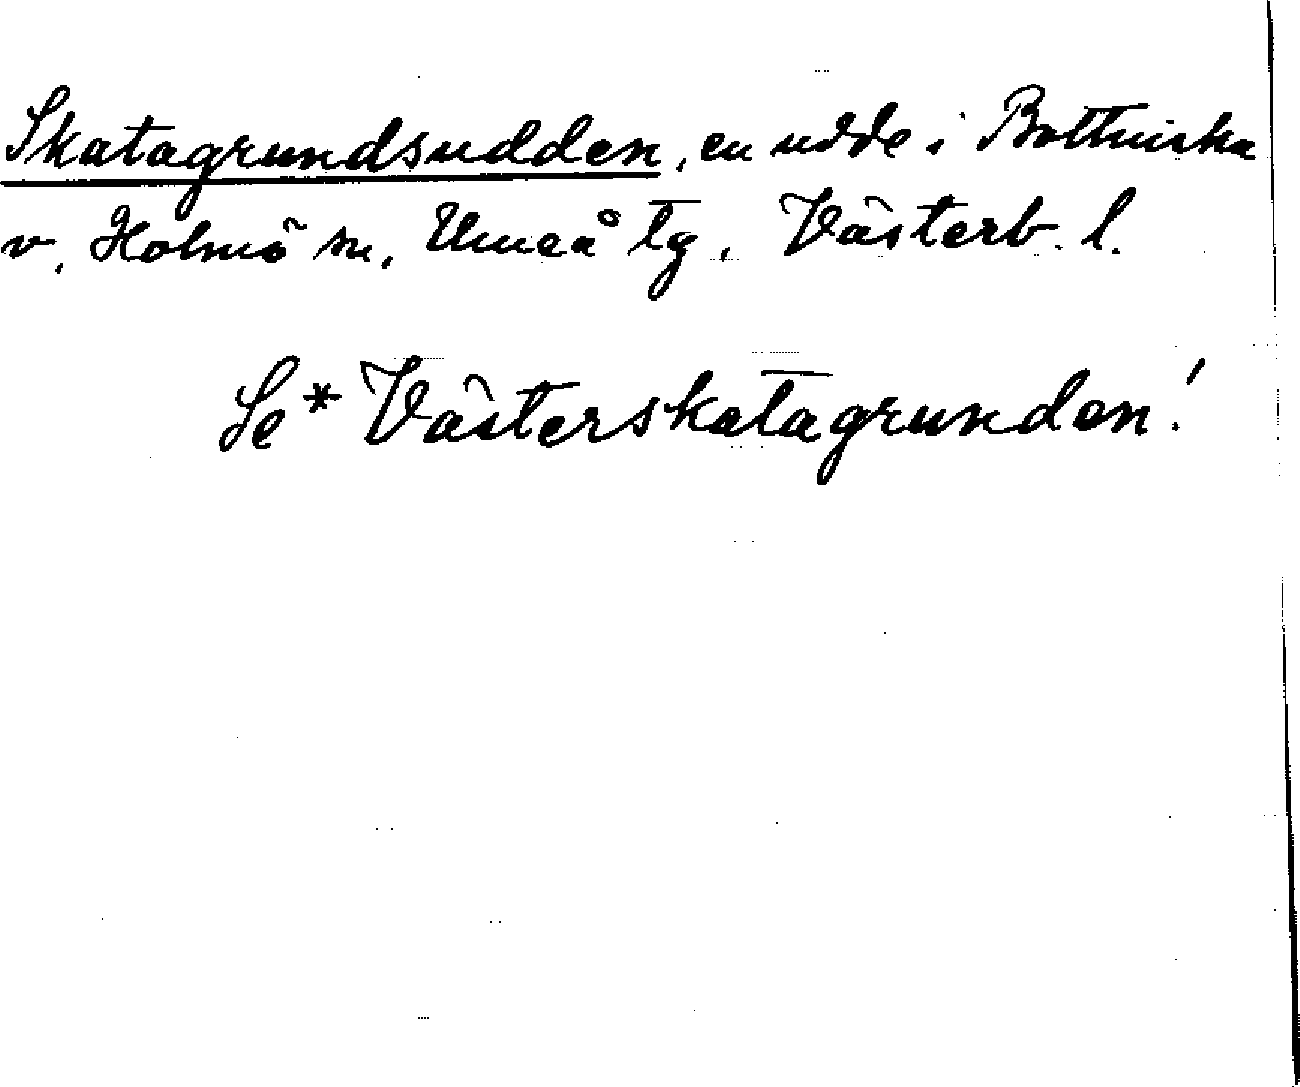 Skatagrundsudden, en udde i Bottniska
v., Holmö sn, Umeå tg, Västerb. l.
Se * Västerskatagrunden!